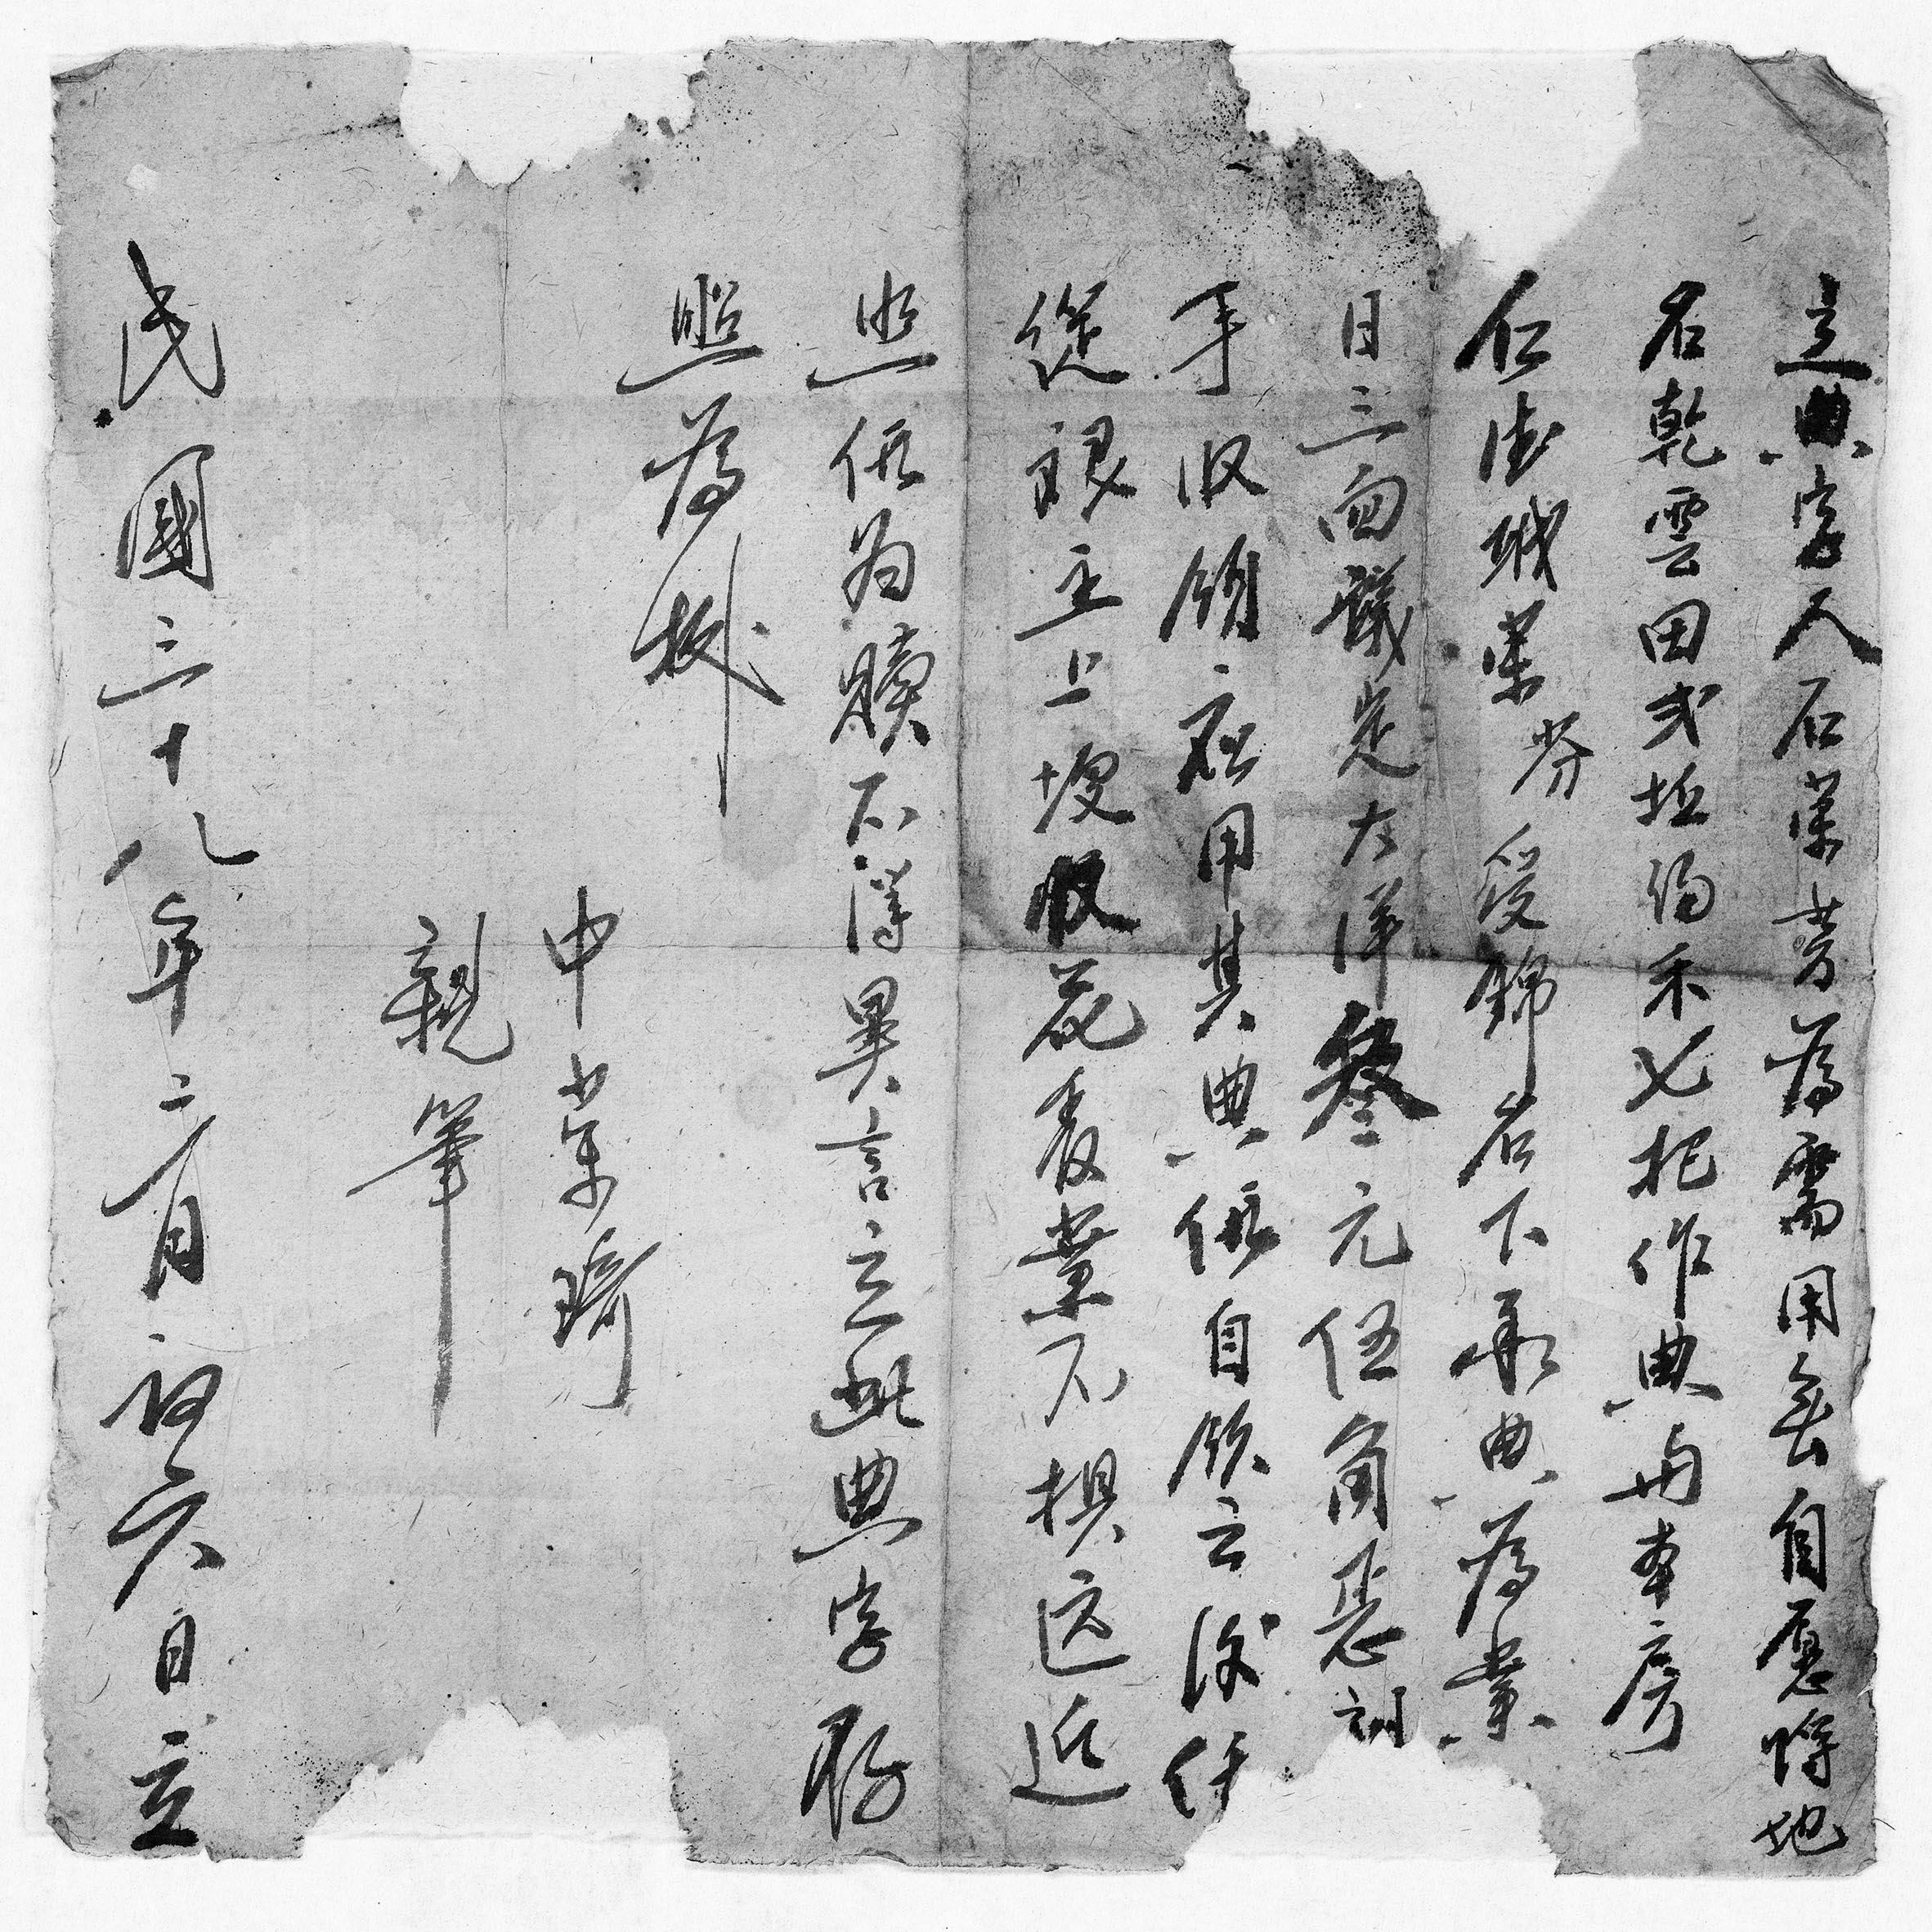 立典字人石業芳為需用無自愿將地
名乾雲田弍坵約禾七把作典与本房
仁德城業芬受錦名下承典為業
日三面議定大洋叁元伍角悉訓
手收領應用其典價自領之後任
從銀主上埂收花看業不損远近
照價為贖不得異言立此典字存
照為据
中業琦
親筆
民國三十八年二月初六日立